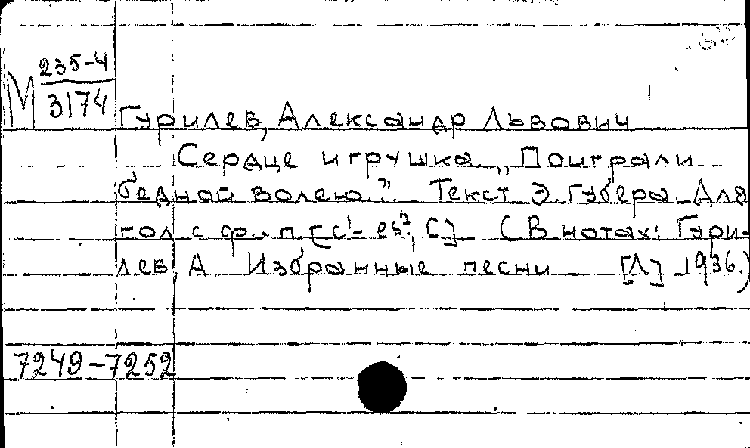 М 235-4
3174
Гурилев, Александр Львович
Сердце игрушка „Поиграли
бедной волею". Текст Э. Губера Для
гол. с ф.-п. [c¹-es², C] (В нотах: Гури-
лев, А Избранные песни [Л] 1936.)
7249-7252